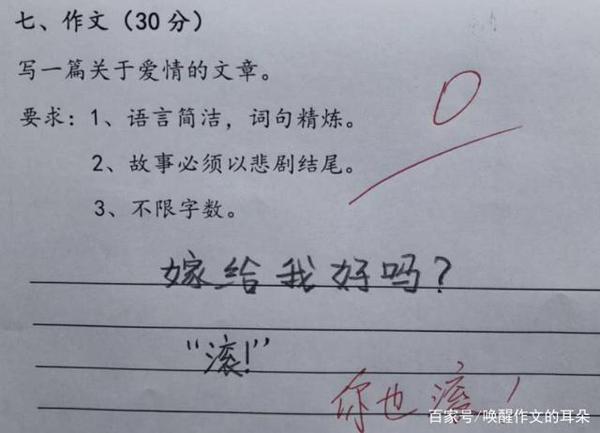 七、作文（30分）
写一篇关于爱情的文章。
0
要求：1、语言简洁，词句精炼。
2、故事必须以悲剧结尾。
3、不限字数。
嫁给我好吗？
“滚！”
你也滚！
百家号/唤醒作文的耳朵